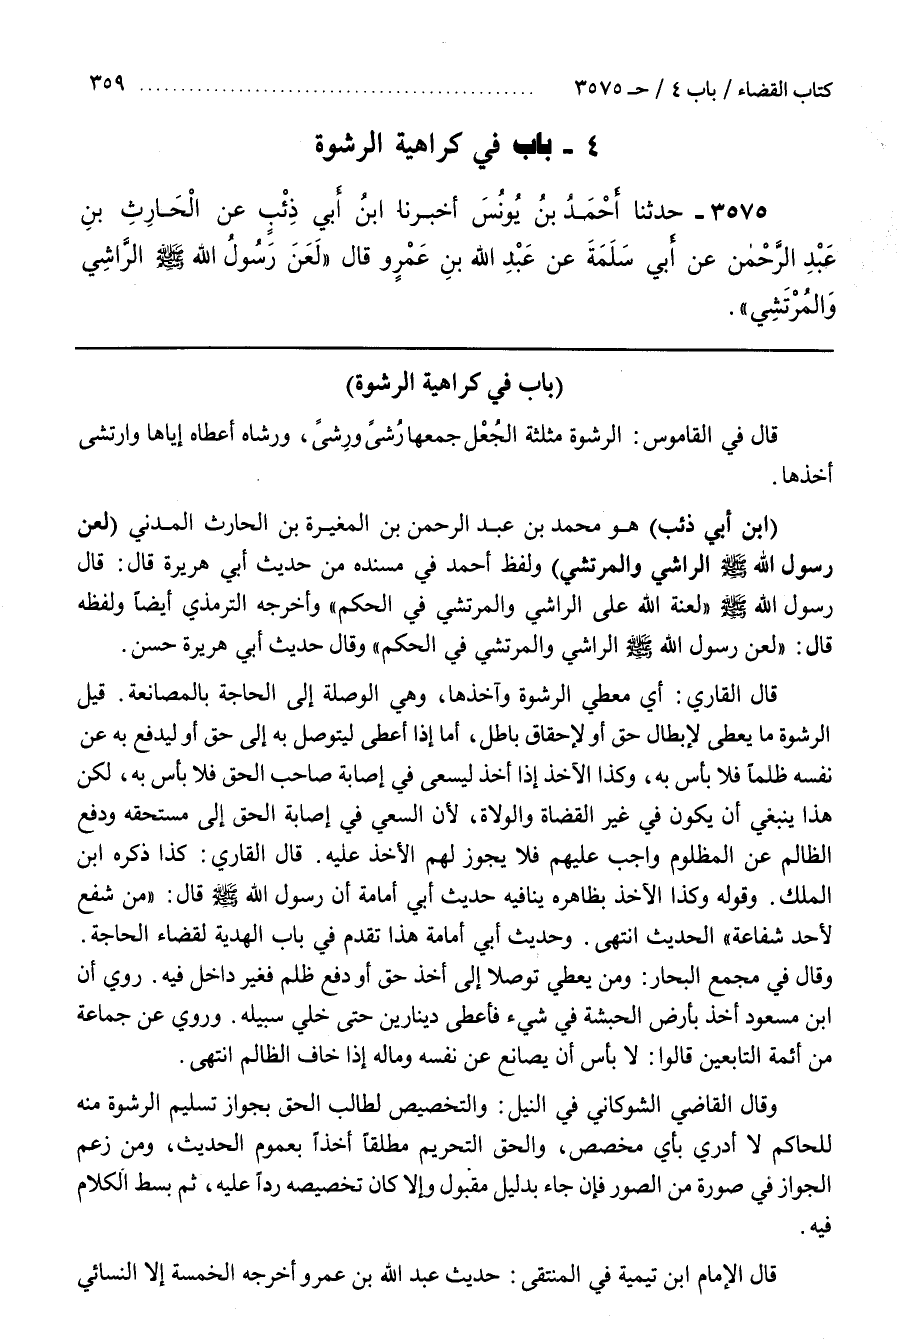 كتاب القضاء / باب ٤ / حـ ٣٥٧٥ ................................................ ٣٥٩
٤ ـ باب في كراهية الرشوة
٣٥٧٥ـ حدثنا أَحْمَـدُ بنُ يُونُسَ أخبـرنا ابنُ أَبي ذِئْبٍ عن الْحَـارِثِ بنِ
عَبْدِ الرَّحْمٰن عن أَبي سَلَمَةَ عن عَبْدِ الله بنِ عَمْرٍو قال «لَعَنَ رَسُولُ الله ﷺ الرَّاشِي
وَالمُرْتَشِي».
(باب في كراهية الرشوة)
قال في القاموس: الرشوة مثلثة الجُعْل جمعها رُشىً ورِشىً، ورشاه أعطاه إياها وارتشى
أخذها.
(ابن أبي ذئب) هـو محمد بن عبـد الرحمن بن المغيـرة بن الحارث المـدني (لعن
رسول الله ﷺ الراشي والمرتشي) ولفظ أحمد في مسنده من حديث أبي هريرة قال: قال
رسول الله ﷺ «لعنة الله على الراشي والمرتشي في الحكم» وأخرجه الترمذي أيضاً ولفظه
قال: «لعن رسول الله ﷺ الراشي والمرتشي في الحكم» وقال حديث أبي هريرة حسن.
قال القاري: أي معطي الرشوة وآخذها، وهي الوصلة إلى الحاجة بالمصانعة. قيل
الرشوة ما يعطى لإبطال حق أو لإحقاق باطل، أما إذا أعطى ليتوصل به إلى حق أو ليدفع به عن
نفسه ظلماً فلا بأس به، وكذا الآخذ إذا أخذ ليسعى في إصابة صاحب الحق فلا بأس به، لكن
هذا ينبغي أن يكون في غير القضاة والولاة، لأن السعي في إصابة الحق إلى مستحقه ودفع
الظالم عن المظلوم واجب عليهم فلا يجوز لهم الأخذ عليه. قال القاري: كذا ذكره ابن
الملك. وقوله وكذا الآخذ بظاهره ينافيه حديث أبي أمامة أن رسول الله ﷺ قال: «من شفع
لأحد شفاعة» الحديث انتهى. وحديث أبي أمامة هذا تقدم في باب الهدية لقضاء الحاجة.
وقال في مجمع البحار: ومن يعطي توصلا إلى أخذ حق أو دفع ظلم فغير داخل فيه. روي أن
ابن مسعود أخذ بأرض الحبشة في شيء فأعطى دينارين حتى خلي سبيله. وروي عن جماعة
من أئمة التابعين قالوا: لا بأس أن يصانع عن نفسه وماله إذا خاف الظالم انتهى.
وقال القاضي الشوكاني في النيل: والتخصيص لطالب الحق بجواز تسليم الرشوة منه
للحاكم لا أدري بأي مخصص، والحق التحريم مطلقاً أخذاً بعموم الحديث، ومن زعم
الجواز في صورة من الصور فإن جاء بدليل مقبول وإلا كان تخصيصه رداً عليه، ثم بسط الكلام
فيه.
قال الإمام ابن تيمية في المنتقى: حديث عبد الله بن عمرو أخرجه الخمسة إلا النسائي